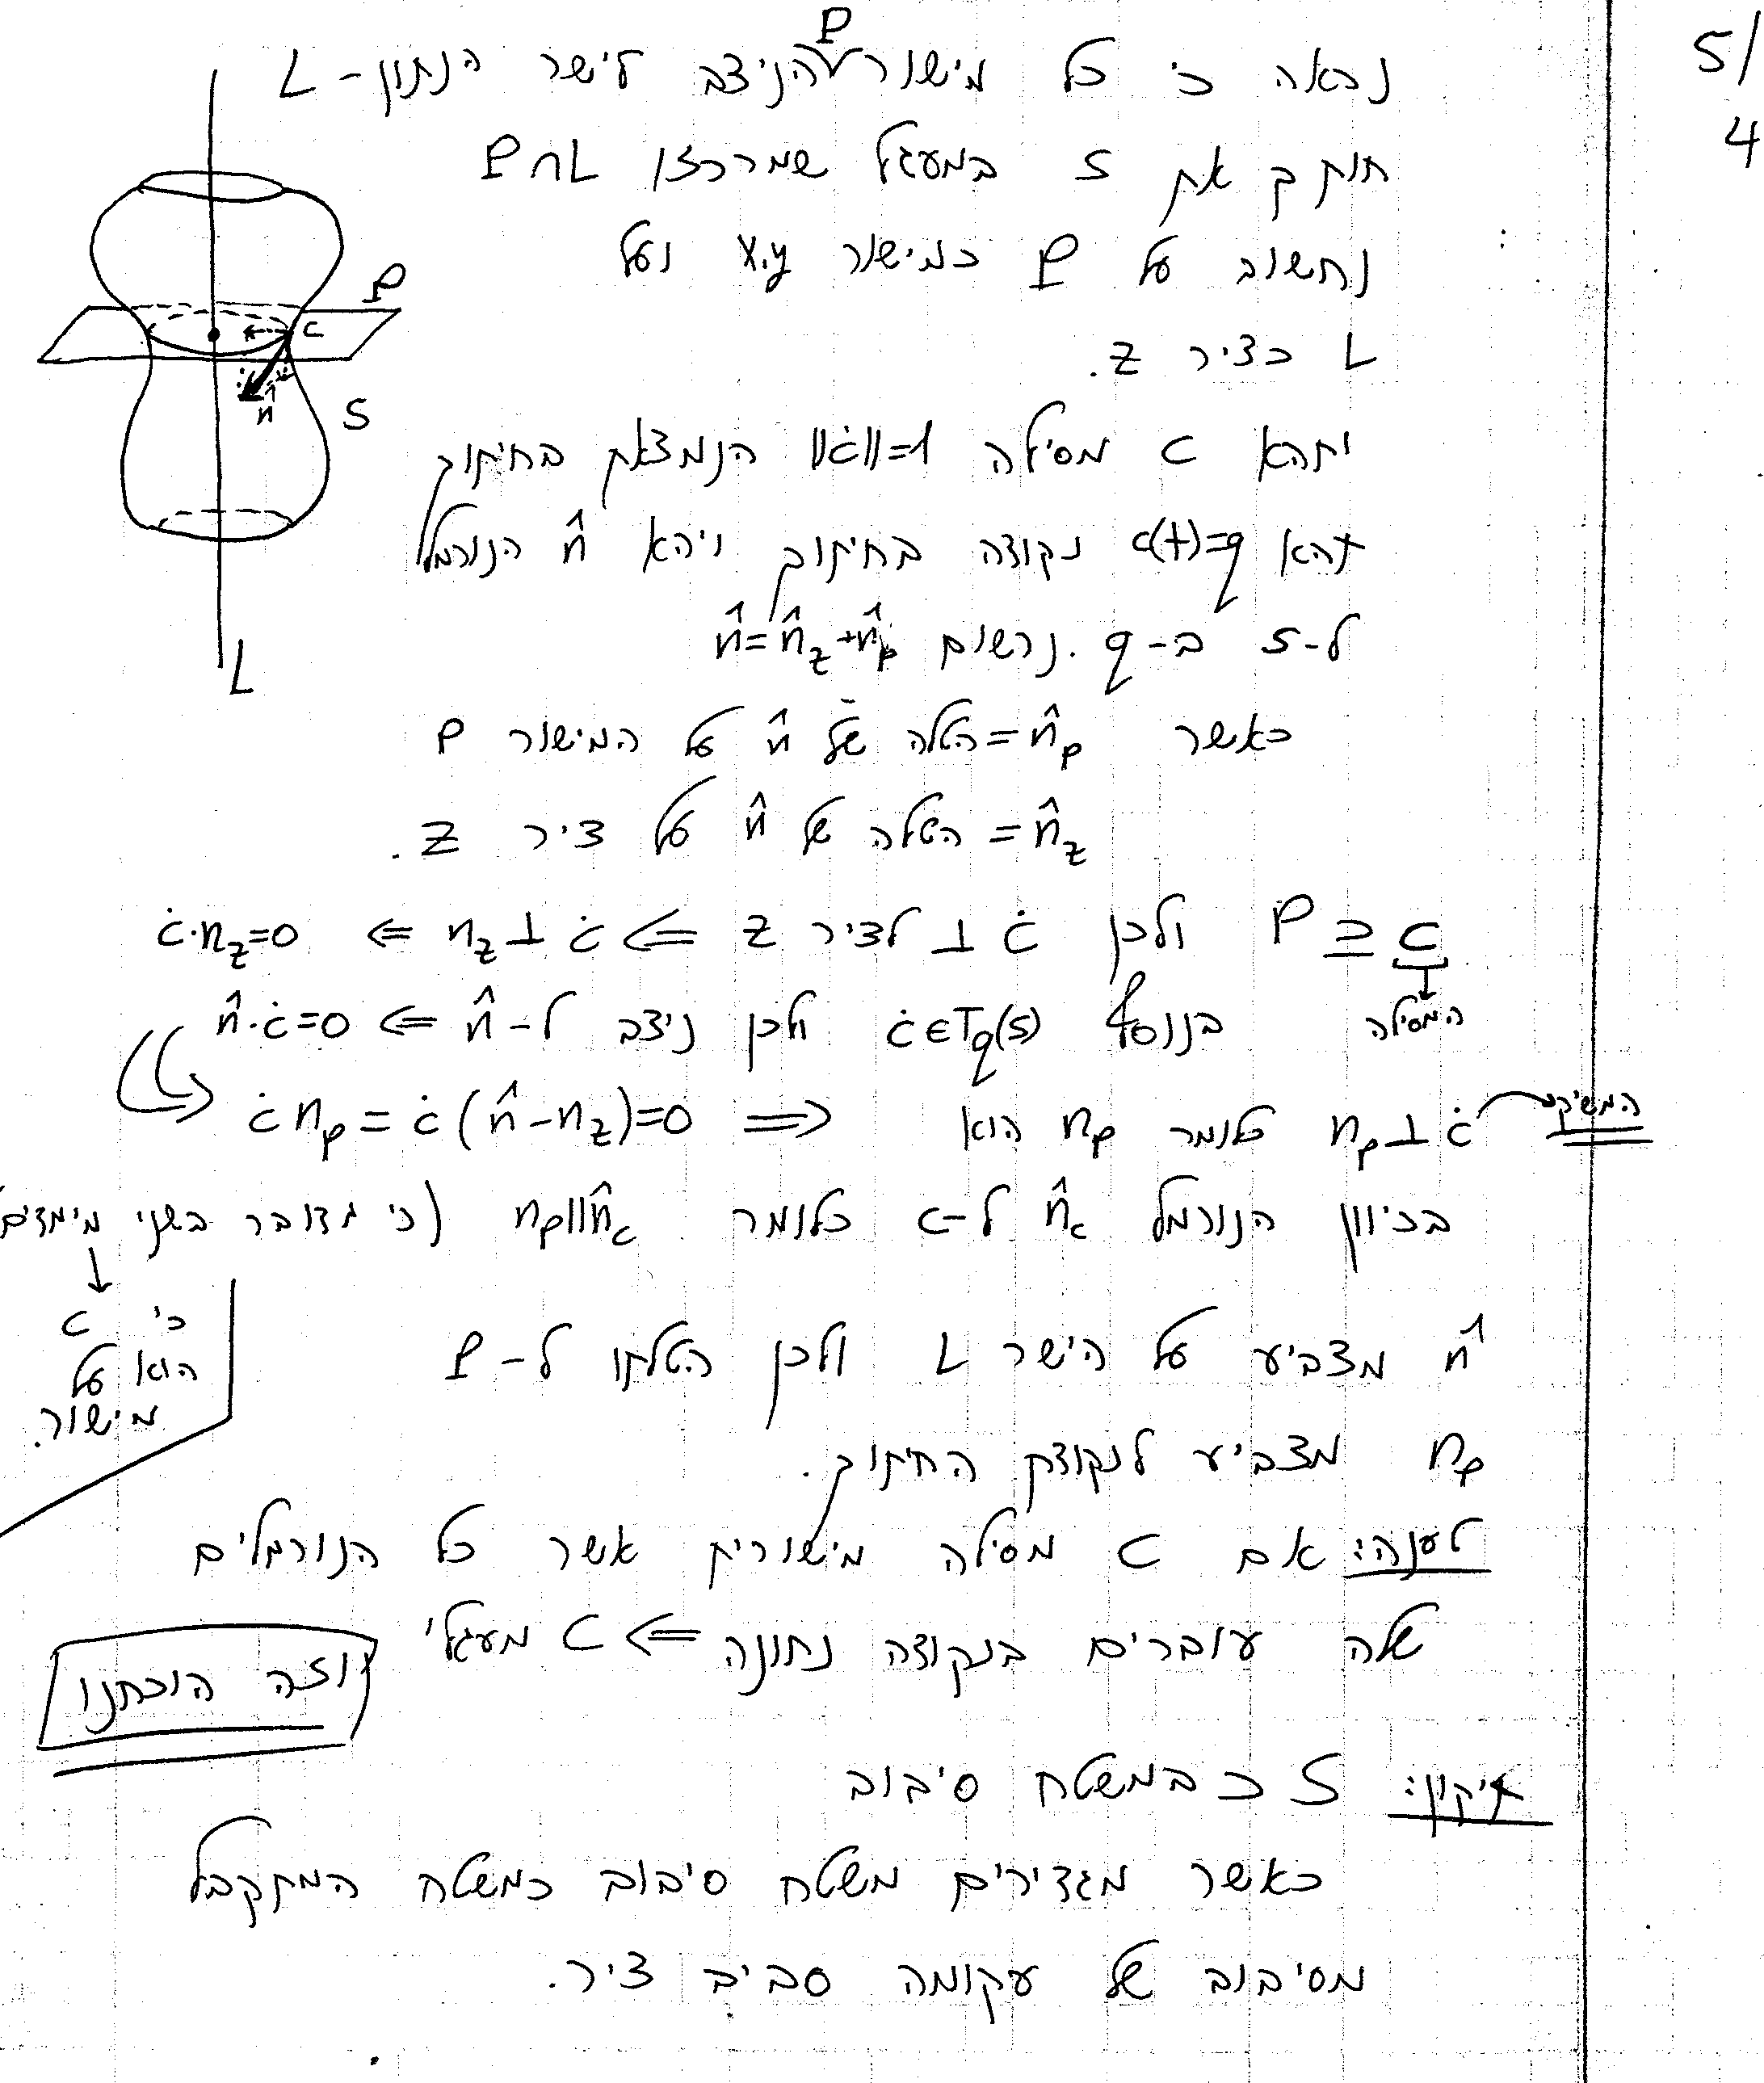 5/4
נראה כי כל מישור P הניצב לישר הנתון - L
חותך את S במעגל שמרכזו P∩L
נחשוב על P כמישור x,y ועל
L כציר z.
תהא c מסילה ‖ċ‖=1 הנמצאת בחיתוך
תהא c(t)=q נקודה בחיתוך ויהא n̂ הנורמל
ל-S ב-q. נרשום n̂=n̂_z+n̂_p
כאשר n̂_p = הטלה של n̂ על המישור P
n̂_z = הטלה של n̂ על ציר z.
c ⊆ P ולכן ċ ⊥ לציר z ⇐ n_z⊥ċ ⇐ ċ·n_z=0
המסילה
בנוסף ċ∈T_q(S) ולכן ניצב ל-n̂ ⇐ n̂·ċ=0
ċn_p = ċ(n̂-n_z)=0 ⟹ n_p⊥ċ כלומר n_p הוא
המשיק
בכיוון הנורמל n̂_c ל-c כלומר n_p‖n̂_c (כי מדובר בשני מימדים
כי c
הוא על
מישור.
n̂ מצביע על הישר L ולכן הטלתו ל-P
n_p מצביע לנקודת החיתוך.
טענה: אם c מסילה מישורית אשר כל הנורמלים
שלה עוברים בנקודה נתונה ⇐ c מעגלי
וזה הוכחנו
תיקון: S כבמשטח סיבוב
כאשר מגדירים משטח סיבוב כמשטח המתקבל
מסיבוב של עקומה סביב ציר.
P
c
n̂
S
L